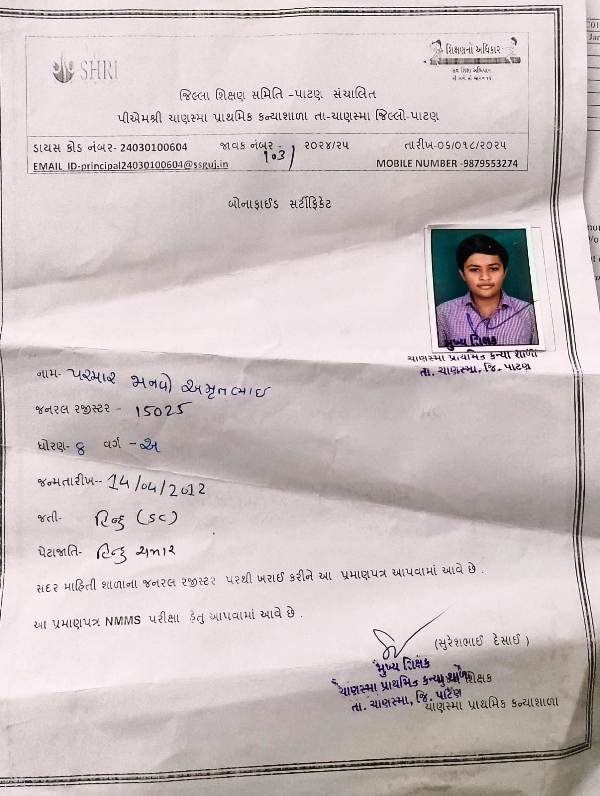 SHRI
શિક્ષણનો અધિકાર
સર્વ શિક્ષા અભિયાન
જિલ્લા શિક્ષણ સમિતિ -પાટણ સંચાલિત
પીએમશ્રી ચાણસ્મા પ્રાથમિક કન્યાશાળા તા-ચાણસ્મા જિલ્લો-પાટણ
ડાયસ કોડ નંબર- 24030100604 જાવક નંબર - 103/ ૨૦૨૪/૨૫ તારીખ-૦૬/૦૧/૨૦૨૫
EMAIL ID-principal24030100604@ssguj.in MOBILE NUMBER -9879553274
બોનાફાઈડ સર્ટીફિકેટ
મુખ્ય શિક્ષક
ચાણસ્મા પ્રાથમિક કન્યા શાળા
તા. ચાણસ્મા, જિ. પાટણ
નામ- પરમાર માનવી અમૃતભાઇ
જનરલ રજીસ્ટર - 15025
ધોરણ- 8 વર્ગ - અ
જન્મતારીખ-- 14/04/2012
જતી- હિન્દુ (SC)
પેટાજાતિ- હિન્દુ ચમાર
સદર માહિતી શાળાના જનરલ રજીસ્ટર પરથી ખરાઈ કરીને આ પ્રમાણપત્ર આપવામાં આવે છે .
આ પ્રમાણપત્ર NMMS પરીક્ષા હેતુ આપવામાં આવે છે .
(સુરેશભાઈ દેસાઈ )
મુખ્ય શિક્ષક
ચાણસ્મા પ્રાથમિક કન્યા શાળા
તા. ચાણસ્મા, જિ. પાટણ
મુખ્ય શિક્ષક
ચાણસ્મા પ્રાથમિક કન્યાશાળા